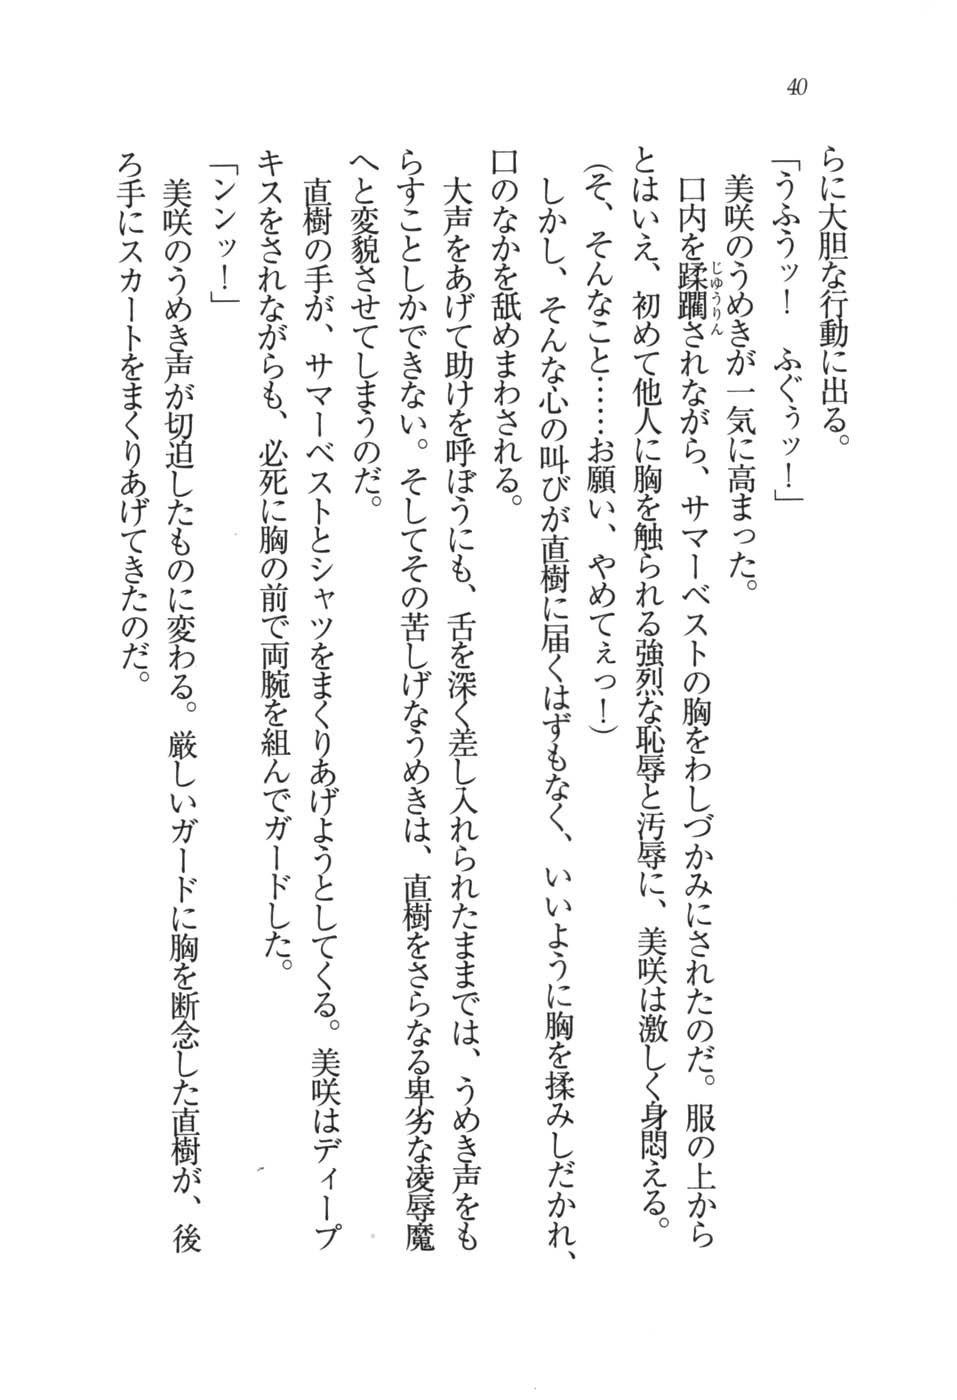 40
らに大胆な行動に出る。
「うふうッ！　ふぐぅッ！」
美咲のうめきが一気に高まった。
口内を蹂躙されながら、サマーベストの胸をわしづかみにされたのだ。服の上から
とはいえ、初めて他人に胸を触られる強烈な恥辱と汚辱に、美咲は激しく身悶える。
（そ、そんなこと……お願い、やめてぇっ！）
しかし、そんな心の叫びが直樹に届くはずもなく、いいように胸を揉みしだかれ、
口のなかを舐めまわされる。
大声をあげて助けを呼ぼうにも、舌を深く差し入れられたままでは、うめき声をも
らすことしかできない。そしてその苦しげなうめきは、直樹をさらなる卑劣な凌辱魔
へと変貌させてしまうのだ。
直樹の手が、サマーベストとシャツをまくりあげようとしてくる。美咲はディープ
キスをされながらも、必死に胸の前で両腕を組んでガードした。
「ンンッ！」
美咲のうめき声が切迫したものに変わる。厳しいガードに胸を断念した直樹が、後
ろ手にスカートをまくりあげてきたのだ。
じゅうりん